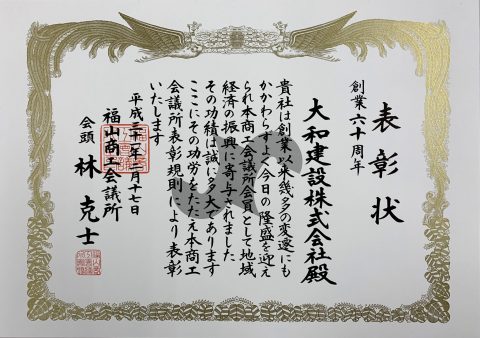 表彰状
創業六十周年
大和建設株式会社殿
貴社は創業以来幾多の変遷にも
かかわらずよく今日の隆盛を迎え
られ本商工会議所会員として地域
経済の振興に寄与されました
その功績は誠に多大であります
ここにその功労をたたえ本商工
会議所表彰規則により表彰
いたします
平成三十一年二月十七日
福山商工会議所
会頭 林克士